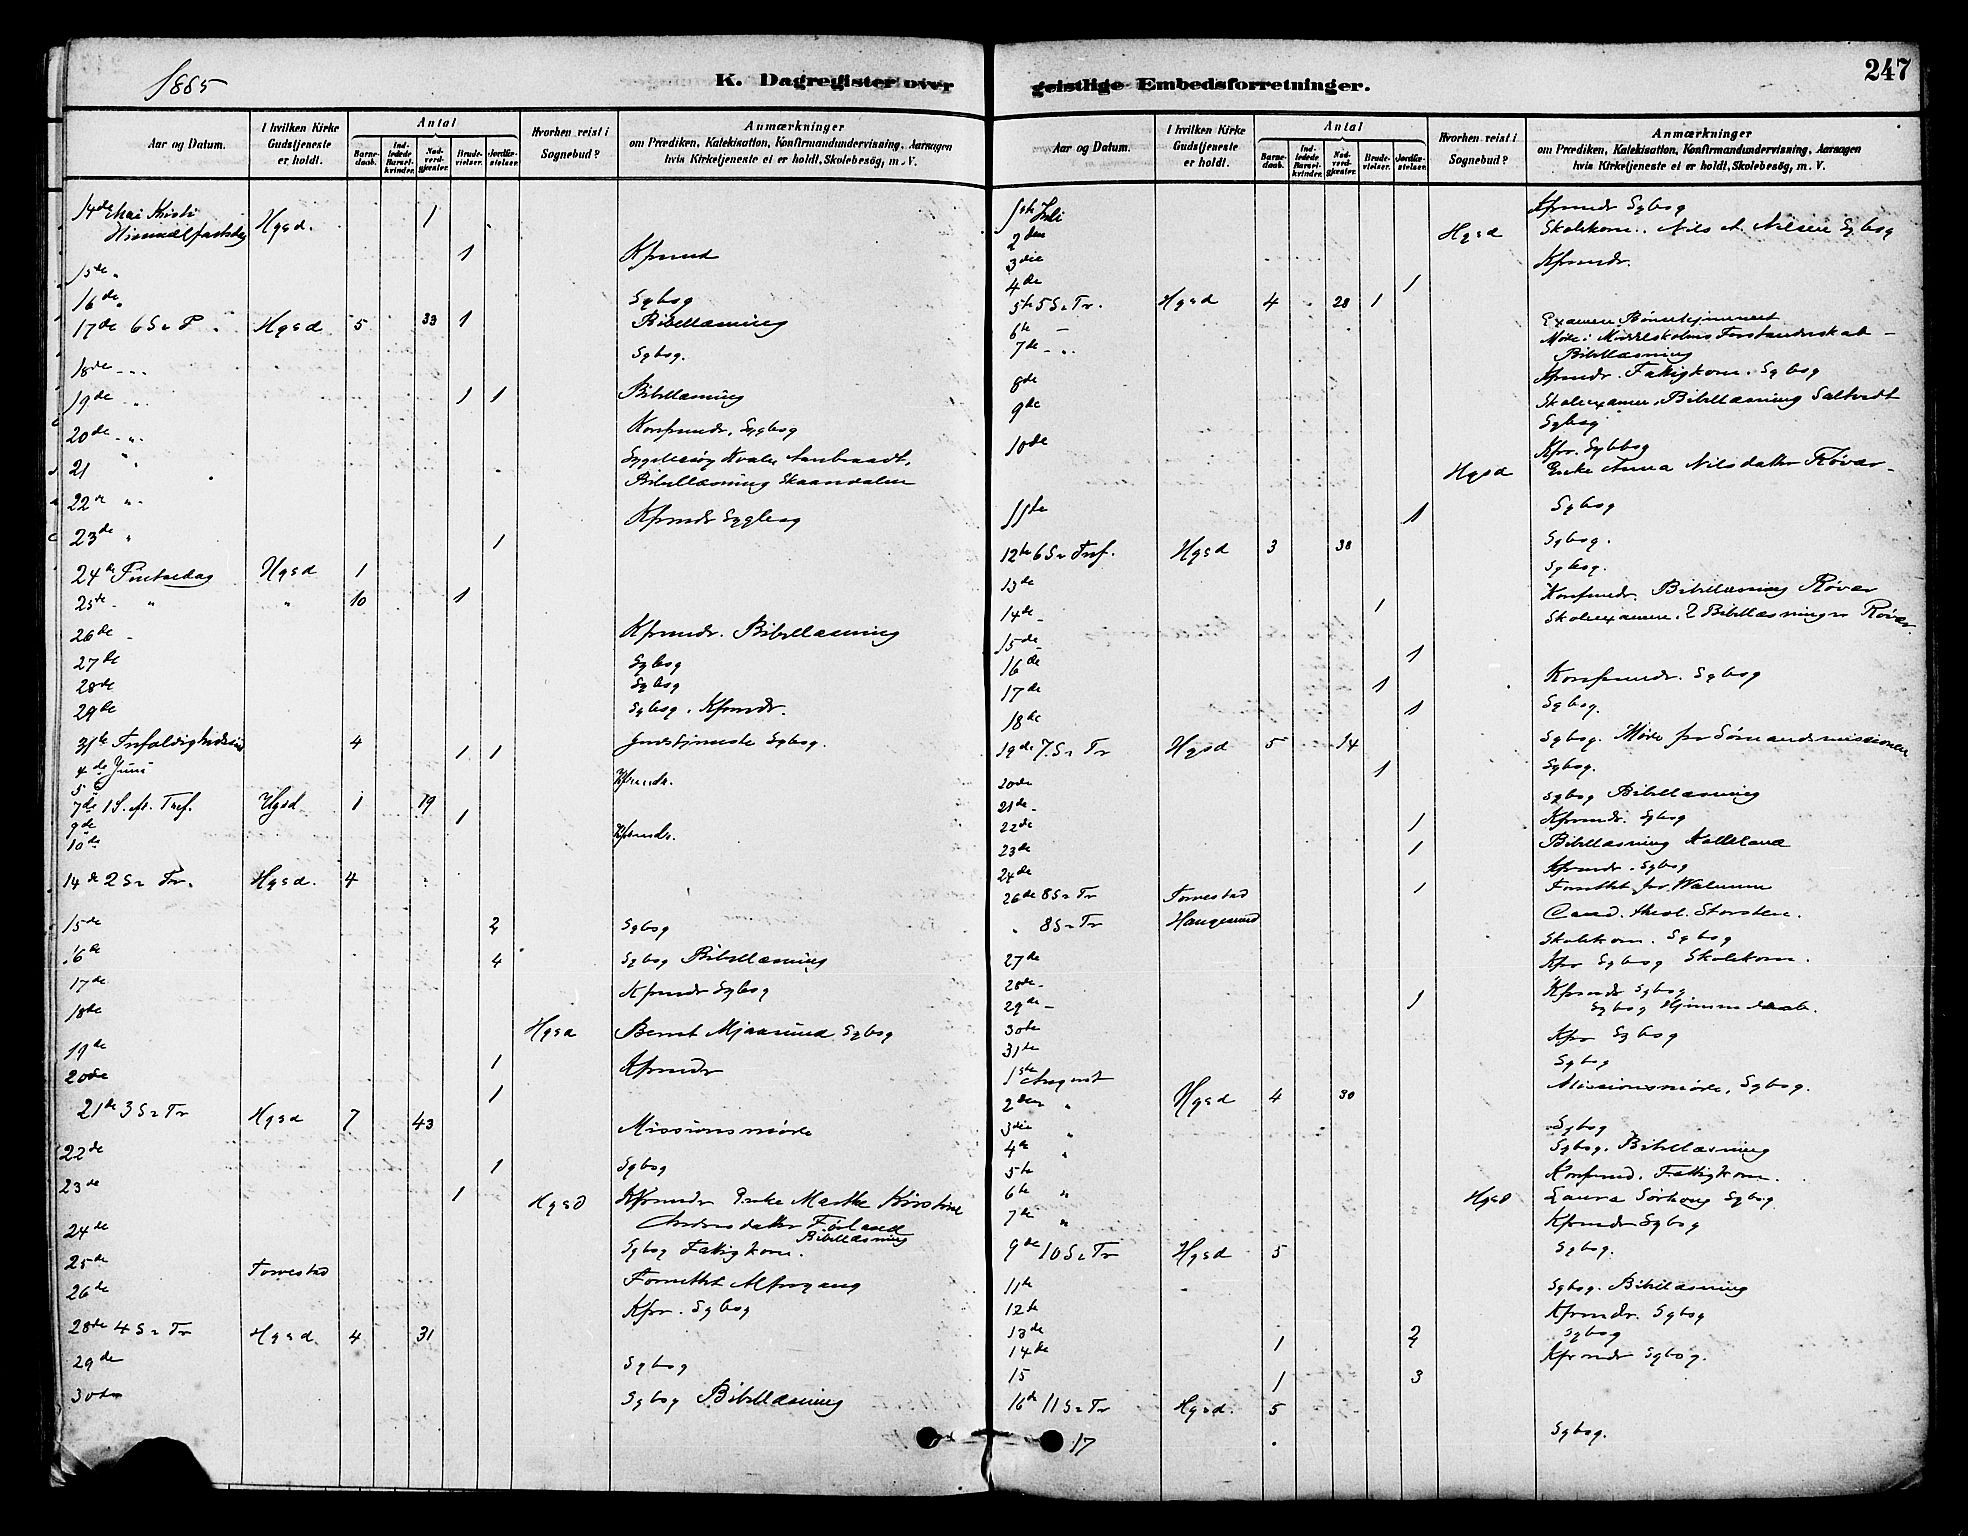 1885
K. Dagregister over
geistlige Embedsforretninger.
247
Aar og Datum.
I hvilken Kirke Gudstjeneste er holdt.
Antal
Barnedaab.
Indledede Barselkvinder.
Nadverdgjester.
Brudevielser.
Jordfæstelser.
Hvorhen reist i Sognebud?
Anmærkninger
om Prædiken, Katekisation, Konfirmandundervisning, Aarsagen
hvis Kirketjeneste ei er holdt, Skolebesøg, m. V.
14de Mai Kristi
Himmelfartsdag Hgsd. 1
15de " 1 Kfrmnd
16de " Sgbsg
17de 6 S. e P. Hgsd 5 33 1 Bibellæsning
18de " Sgbsg.
19de " 1 1 Bibellæsning
20de " Konfrmndr, Sygbsg
21 "
Bibellæsning Skaaredalen
22de "
Kfrmdr Sygbesg
23de " 1
24de Pintsedag Hgsd 1
25de " " 10 1
26de Kfrmndr. Bibellæsning
27de Sgbsg
28de Sgbsg
29de Sgbsg. Kfrmdr.
31te 4 1 1 Gudstjeneste Sgbsg.
4de Juni
5 Kfrmndr.
7de 1 S. e. Tref. Hgsd 1 19
9de 1
10de Kfrmndr.
14de 2 S. e Tr. Hgsd. 4
15de 2 Sgbsg
16de 4 Sgbsg Bibellæsning
17de Kfrmdr Sgbsg
18de
Hgsd Bernt Mjaasund Sgbsg
19de 1 Kfrmdr
20de 1
21de 3 S. e Tr Hgsd 7 43 Missionsmøde
22de 1 Sgbsg
23de 1 Hgsd Kfrmndr Enke Marthe Kirstine
Andersdatter Førland
24de Bibellæsning
Sgbsg Fattigkom.
25de Torvestad
26de Forrettet
Kfr. Sgbsg
28de 4 S. e Tr Hgsd. 4 31
29de Sgbsg
30te Sgbsg Bibellæsning
Aar og Datum.
I hvilken Kirke Gudstjeneste er holdt.
Antal
Barnedaab.
Indledede Barselkvinder.
Nadverdgjester.
Brudevielser.
Jordfæstelser.
Hvorhen reist i Sognebud?
Anmærkninger
om Prædiken, Katekisation, Konfirmandundervisning, Aarsagen
hvis Kirketjeneste ei er holdt, Skolebesøg, m. V.
1ste Juli Kfrmndr Sgbsg
2den Hgsd Skolekom. Nils A. Nilsen Sgbsg
3die Kfrmndr.
4de 1
5te 5 S. e Tr. Hgsd 4 28 1
6te
7de Møde i Middelskolens Forstanderskab
Bibellæsning
8de Kfrmdr. Fattigkom. Sgbsg
9de Skoleexamen. Bibellæsning Saltvedt
Sgbsg
10de Kfr. Sgbsg
Hgsd Enke Anna Nilsdatter Røvær
11te 1 Sgbsg
12te 6 S. e Tref. Hgsd 3 38 Sgbsg.
13de Sgbsg.
14de 1 Konfrmdr. Bibellæsning Røvær
15de Skoleexamen. 2 Bibellæsninger Røvær.
16de 1
17de 1 Konfrmndr. Sgbsg
18de 1 Sgbsg.
19de 7. S. e Tr Hgsd 5 14 Sgbsg. Møde for Sømandsmissionen
20de 1 Sgbsg.
21de Sgbsg Bibellæsning
22de 1 Kfrmndr. Sgbsg
23de 1 Bibellæsning
24de Kfrmdr. Sgbsg
26de 8 S. e Tr Torvestad 1 Forrettet for
" 8 S. e Tr Haugesund Cand. theol. Storsten.
Skolekom. Sgbsg
27de Kfr Sgbsg Skolekom.
28de Kfrmdr Sgbsg
29de 1 Sgbsg Hjemmedaab.
30te Kfr Sgbsg
31te Sgbsg
1ste August Missionsmøde, Sgbsg.
2den " Hgsd 4 30
3die " Sgbsg
4de " Sgbsg. Bibellæsning
5te Konfrmnd. Fattigkom.
6te " Hgsd Laura Sørhoug Sgbsg
7de " Kfrmdr Sgbsg
9de 10 S. e Tr Hgsd 5 Sgbsg.
11te Sgbsg. Bibellæsning
12te Kfrmdr. Sgbsg
13de 2 Sgbsg
14de 1 Kfrmdr Sgbsg.
15 1 3
16de 11 S. e Tr Hgsd. 5
17 Sgbsg.